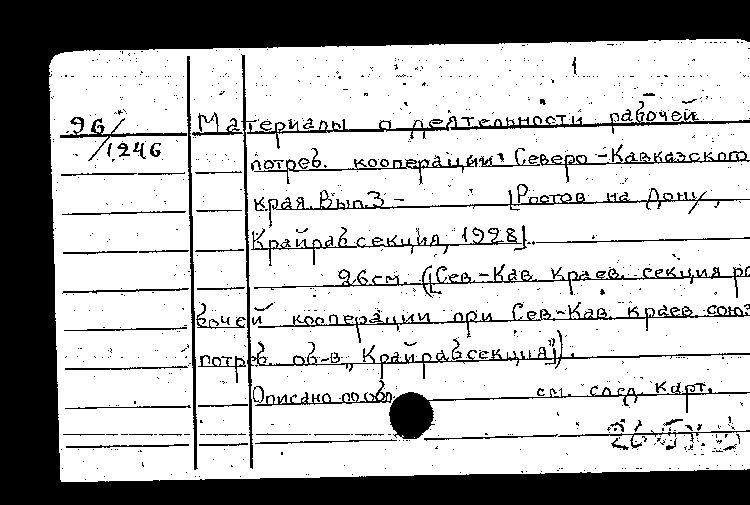 1
96/1246
Материалы о деятельности рабочей
потреб. кооперации Северо-Кавказского
края. Вып. 3 - [Ростов на Дону,
Крайрабсекция, 1928].
26 см. ([Сев.-Кав. краев. секция ра
бочей кооперации при Сев.-Кав. краев союз
потреб. об-в „Крайрабсекция"]).
Описано по обл. см. след. карт.